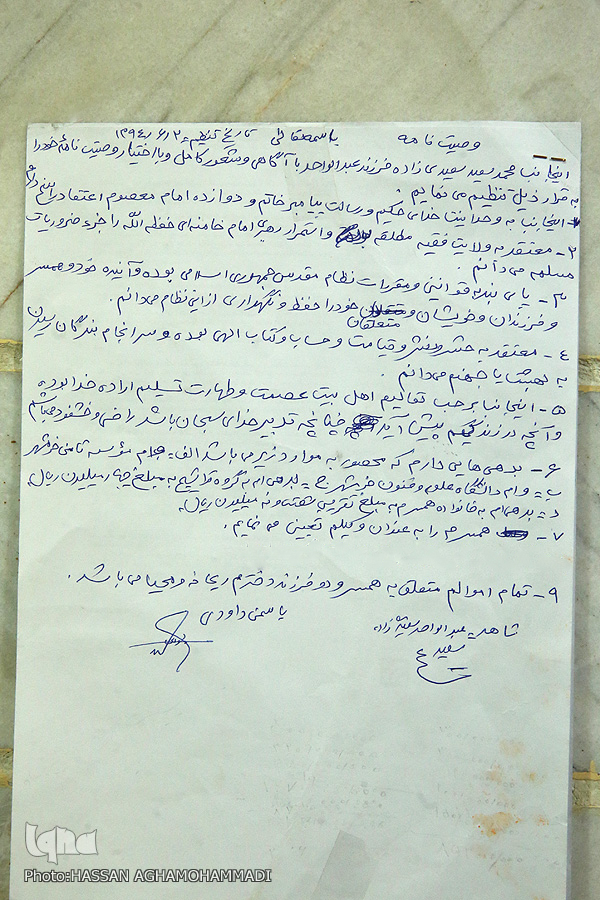 وصیت نامه باسمه تعالی تاریخ تنظیم ۱۳۹۴/۶/۲
اینجانب محمد سعید سعیدی زاده فرزند عبدالواحد با آگاهی و شعور کامل و با اختیار وصیت نامه خود را
به قرار ذیل تنظیم می نمایم.
۱- اینجانب به وحدانیت خدای حکیم و رسالت پیامبر خاتم و دوازده امام معصوم اعتقاد راسخ دارم
۲- معتقد به ولایت فقیه مطلقه و استمرار رهبری امام خامنه ای حفظه الله را جزء ضروریات
مسلمه می دانم.
۳- پای بند به قوانین و مقررات نظام مقدس جمهوری اسلامی بوده و آینده خود و همسر
و فرزندان و خویشان و متعلقان خود را حفظ و نگهداری از این نظام می دانم.
۴- معتقد به حشر و نشر و قیامت و حساب و کتاب الهی بوده و سرانجام بندگان رسیدن
به بهشت یا جهنم می دانم.
۵- اینجانب بر حسب تعالیم اهل بیت عصمت و طهارت تسلیم اراده خدا بوده
و آنچه در زندگیم پیش آید چنانچه تدبیر خدای سبحان باشد راضی و خشنود میباشم
۶- بدهی هایی دارم که محصور به موارد زیر می باشد الف- وام مؤسسه ثامن خرمشهر
ب- وام دانشگاه علوم و فنون خرمشهر ج- بدهی ام به گروه به مبلغ چهار میلیون ریال
د- بدهی ام به خانواده همسرم به مبلغ تقریبی هفتاد و نه میلیون ریال.
۷- همسرم را به عنوان وکیلم تعیین می نمایم.
۹- تمام اموالم متعلق به همسر و دو فرزند دخترم ریحانه و محیا می باشد.
شاهد- عبدالواحد سعیدی زاده یاسمن داودی
سعید
iqna
Photo:HASSAN AGHAMOHAMMADI